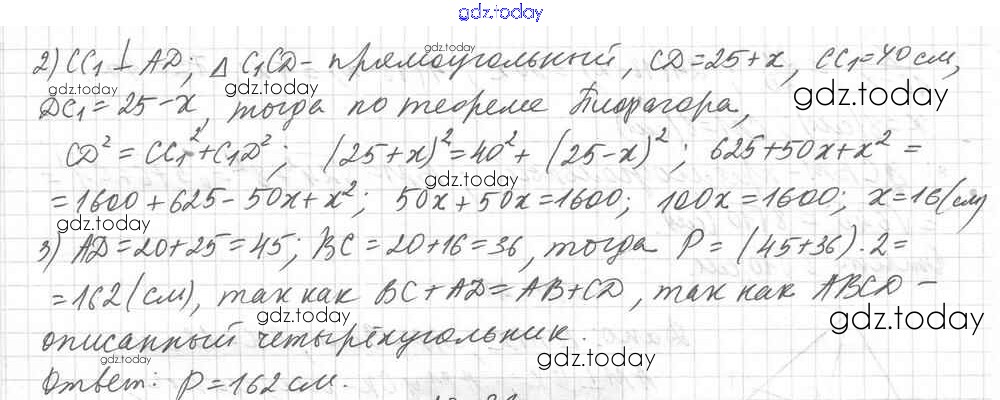 gdz.today
2) CC₁ ⊥ AD; △ C₁CD - прямоугольный, CD = 25 + x, CC₁ = 40 см,
DC₁ = 25 - x, тогда по теореме Пифагора,
CD² = CC₁² + C₁D²; (25 + x)² = 40² + (25 - x)²; 625 + 50x + x² =
= 1600 + 625 - 50x + x²; 50x + 50x = 1600; 100x = 1600; x = 16 (см)
3) AD = 20 + 25 = 45; BC = 20 + 16 = 36, тогда P = (45 + 36) · 2 =
= 162 (см), так как BC + AD = AB + CD, так как ABCD -
описанный четырёхугольник.
Ответ: P = 162 см.
gdz.today
gdz.today
gdz.today
gdz.today
gdz.today
gdz.today
gdz.today
gdz.today
gdz.today
gdz.today